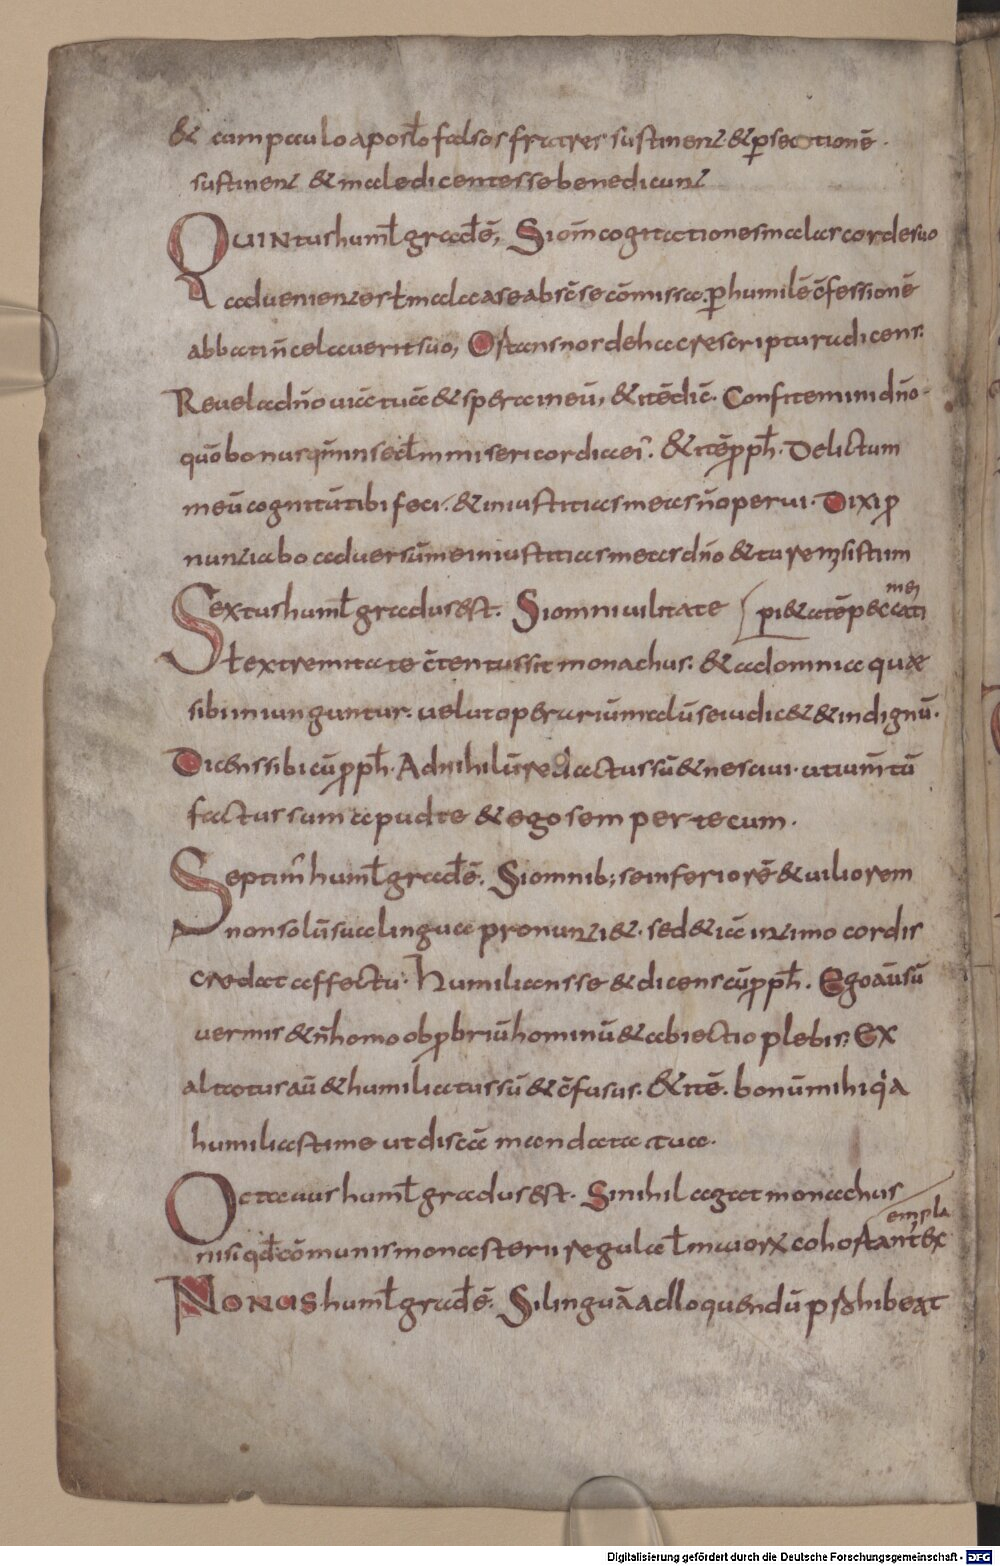 & cum paulo apostło falsos fratres sustinent & psecutionē.
sustinent & maledicentes se benedicunt
QUINtus humł gradē, Si om̄ cogitationes malas cordesuo
aduenientes ł mala a se absc̄se cōmissa. p humilē c̄fessionē
abbati n̄ celauerit suo, Ortans nos de hac re scriptura dicens.
Reuela dn̄o uiā tuā & spera in eū, & itē dic̄. Confitemini dn̄o
quō bonus qn̄m in secłm misericordia ei'. & itē pph. Delictum
meū cognitū tibi feci. & iniustitias meas n̄ operui. Dixi p
nuntiabo aduersū me iniustitias meas dn̄o & tu remisisti im
Sextus humł gradus est. Si omni uilitate
mei
pi&atē peccati
ł extremitate c̄tentus sit monachus. & ad omnia quæ
sibi iniunguntur. uelut operariū malū se iudic& & indignū.
Dicens sibi cū pph. Ad nihilū redactus sū & nesciui. ut iumtū
factus sum apud te & ego semper tecum.
Septim' humł gradē. Si omnib; se inferiorē & uiliorem
non solū sua lingua pronunti&. sed & iā intimo cordis
credat affectu. Humilians se & dicens cū pph. Ego aū sū
uermis & n̄ homo obpbriū hominū & abiectio plebis. Ex
altatus aū & humiliatus sū & c̄fusus. & itē. bonū mihi qa
humiliasti me ut discā mandata tua.
Octauus humł gradus est. Si nihil agat monachus
nisi qđ cōmunis monasterii regula ł maiorx cohortant ex
empla
NONUS humł gradē. Si linguā ad loquendū phibeat
Digitalisierung gefördert durch die Deutsche Forschungsgemeinschaft - DFG